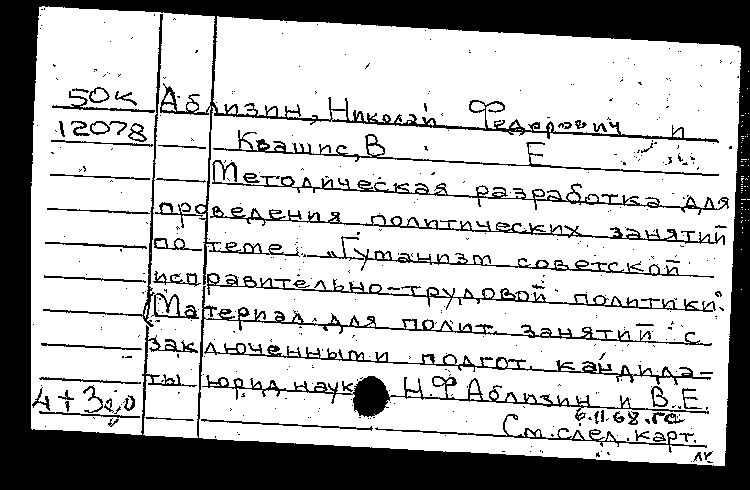 50К Аблизин, Николай Федерович и
12078 Квашис, В. Е
Методическая разработка для
проведения политических занятий
по теме: „Гуманизм советской
исправительно-трудовой политики".
(Материал для полит. занятий с
заключенными подгот. кандида-
ты юрид наук Н.Ф Аблизин и В.Е.
4+3
6.11.68.
См.след.карт.
ЛК